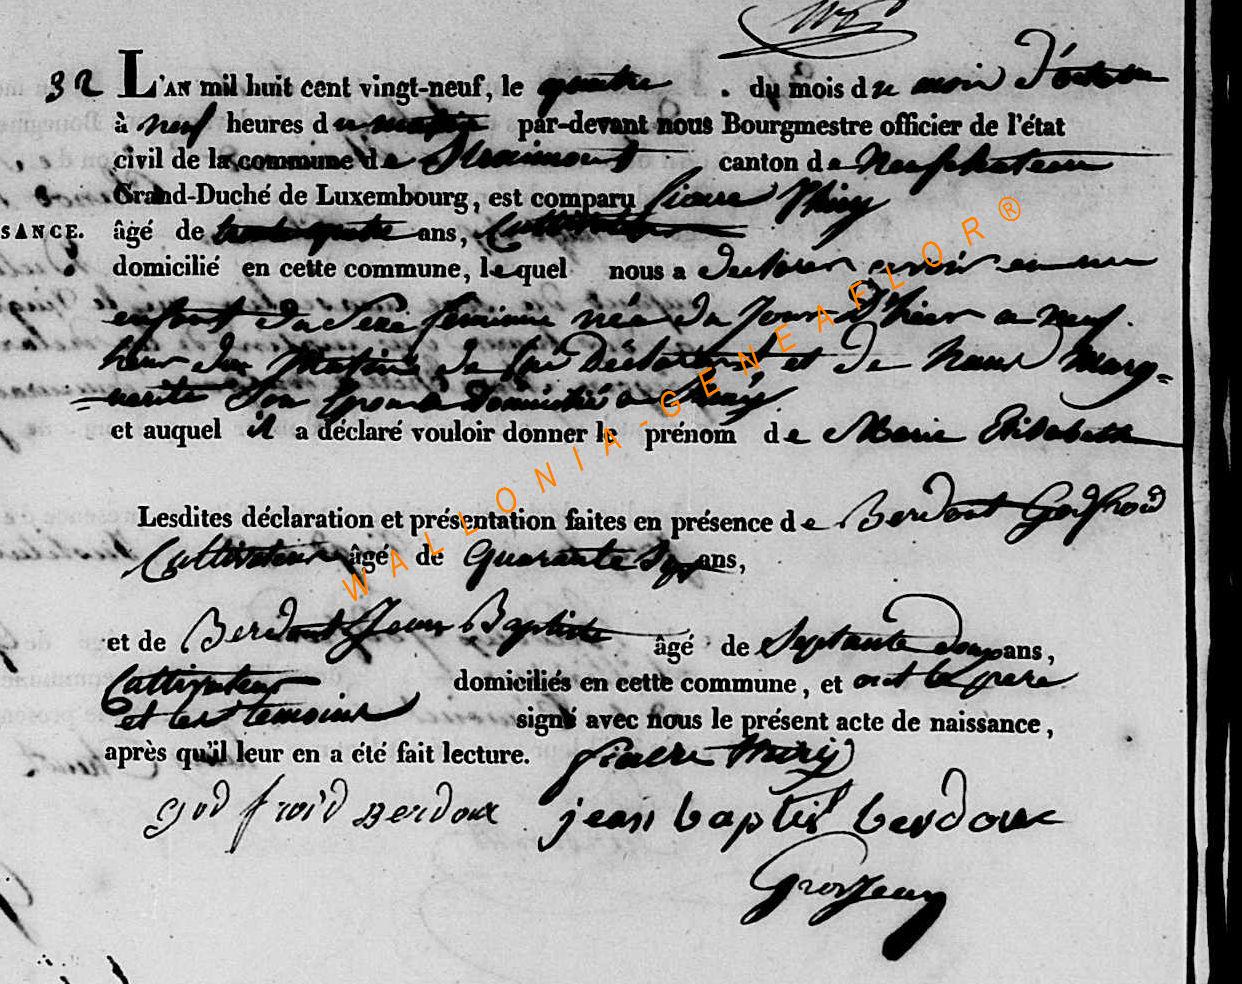 32 L'AN mil huit cent vingt-neuf, le quatre du mois de mois D'octobre
à neuf heures du matin par-devant nous Bourgmestre officier de l'état
civil de la commune de Straimont canton de Neufchateau
Grand-Duché de Luxembourg, est comparu Pierre Thiry
SANCE. âgé de trente quatre ans, Cultivateur
domicilié en cette commune, lequel nous a declarer avoir eu une
enfant du Sexe feminin née du Jour D'hier a neuf
heur dux Matin de lui Déclarant et de Marg=
=uerite Son Epouse Domicilié a
et auquel il a déclaré vouloir donner le prénom de Marie Elisabeth
Lesdites déclaration et présentation faites en présence de Berdout Godfroid
Cultivateur âgé de Quarante Six ans,
et de Berdout Jean Baptiste âgé de Septante Deux ans,
Cattivateur domiciliés en cette commune, et ont le pere
et les temoins signé avec nous le présent acte de naissance,
après qu'il leur en a été fait lecture. Pierre thiry
god froid Berdoux jean baptis berdoux
Grosjean
WALLONIA-GENEAFLOR®